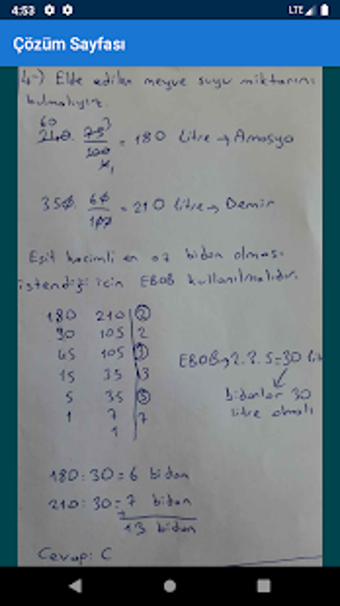 4:53
LTE
Çözüm Sayfası
4-) Elde edilen meyve suyu miktarını
bulmalıyız.
60 3
240. 75/100 = 180 Litre → Amasya
4 1
350. 60/100 = 210 Litre → Demir
Eşit hacimli en az bidon olması
istendiği için EBOB kullanılmalıdır.
180 210 | 2
90 105 | 2
45 105 | 3
15 35 | 3
5 35 | 5
1 7 | 7
1
EBOB → 2.3.5=30 lit
bidonlar 30
litre olmalı
180:30=6 bidon
210:30=7 bidon
+
13 bidon
Cevap: C